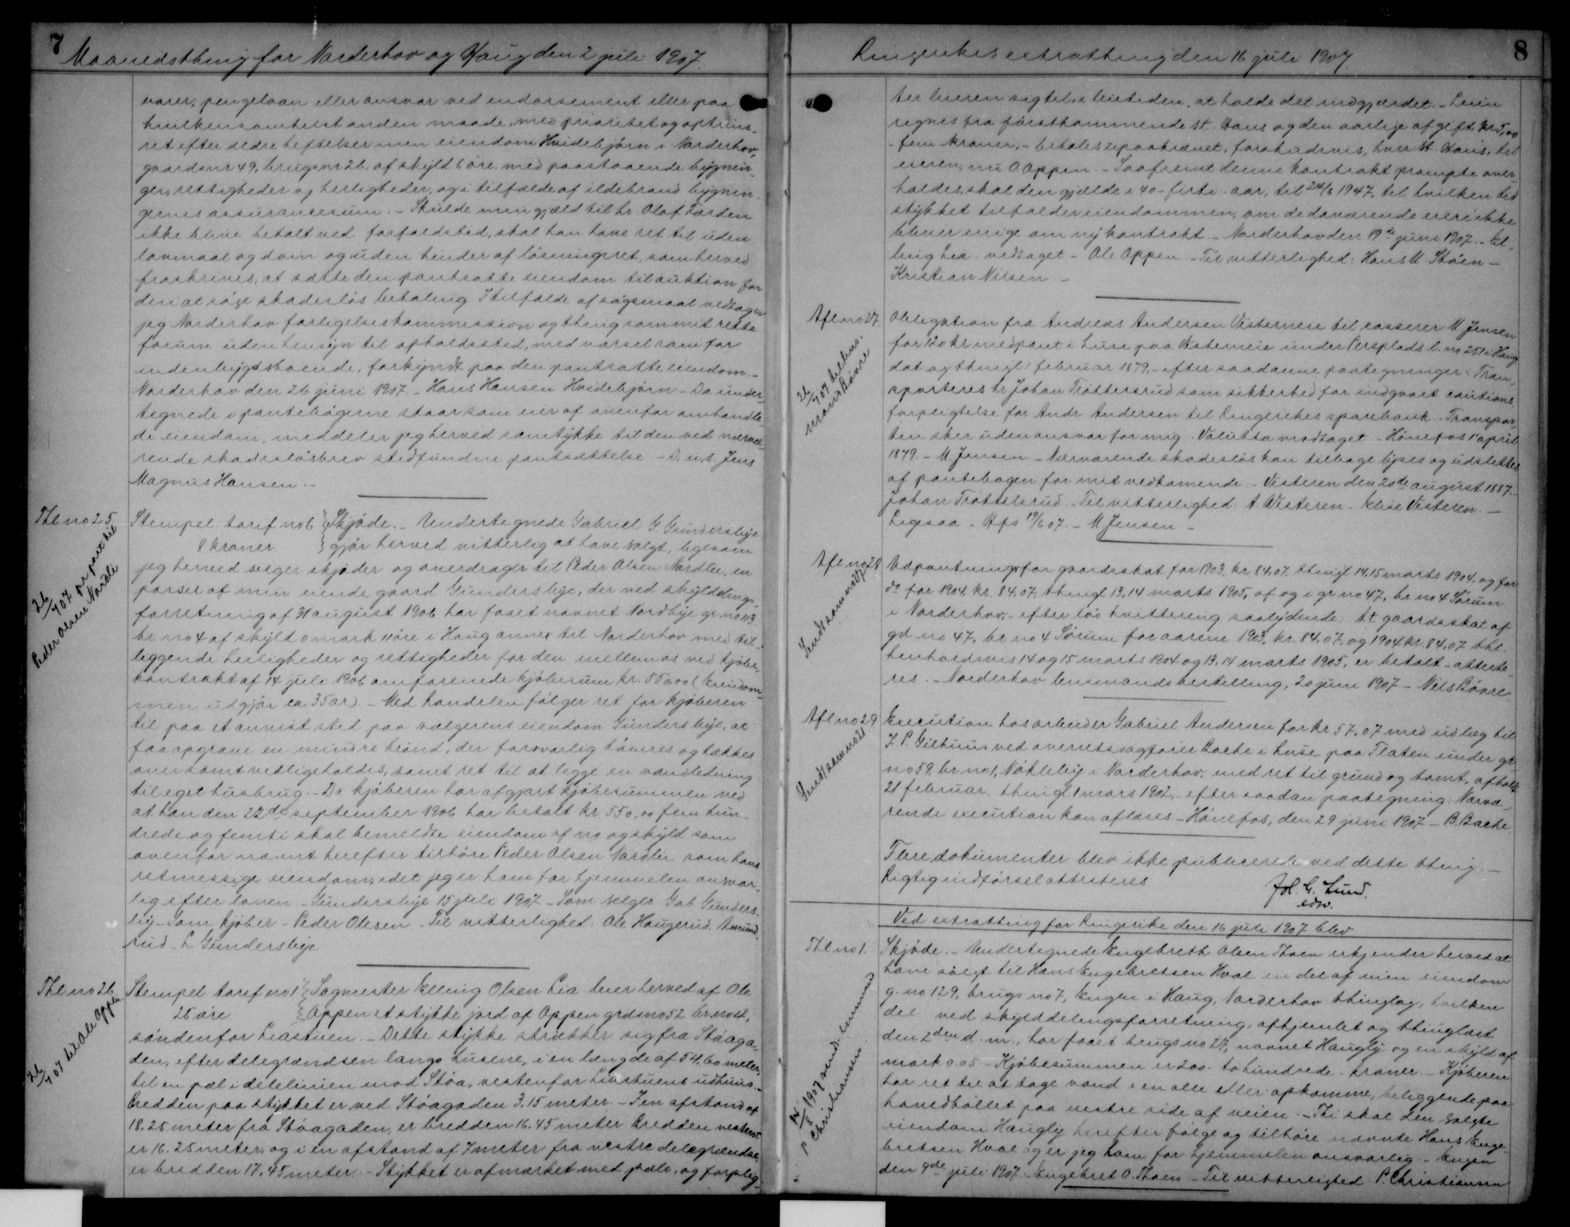 7 Maanedsthing for Norderhov og Haug den 2 juli 1907.
varer, pengelaan eller ansvar ved endossement eller paa
hvilkensomhelst anden maade, med prioritet og optrins-
ret efter ældre heftelser min eiendom Hvidebjørn i Norderhov,
gaardsnr 49, brugsnr 26. af skyld 6 øre. med paastaaende bygnin-
ger, rettigheder og herligheder, og i tilfælde af ildebrand bygnin-
gernes assurancesum. - Skulde min gjæld til hr. Olaf Færden
ikke blive betalt ved forfaldstid, skal han have ret til uden
lovmaal og dom og uden hinder af løsningsret, som herved
fraskrives, at sætte den pantsatte eiendom til auktion for
deri at søge skadesløs betaling. I tilfælde af søgsmaal vedtager
jeg Norderhov forligelseskommission og thing som mit rette
forum uden hensyn til opholdssted, med varsel som for
indenbygdsboende, forkyndt paa den pantsatte eiendom. -
Norderhov den 26 juni 1907. - Hans Hansen Hvidebjørn - Da under-
tegnede i pantebøgerne staar som eier af ovenfor omhandle-
de eiendom, meddeler jeg herved samtykke til den ved nærvæ-
rende skadesløsbrev stedfundne pantsættelse. - D. u. s. Jens
Magnus Hansen. -
Thl no 25
26/7 07 pr post til
Peder Olsen Nordli
Stempel tarif no 6 Skjøde. - Undertegnede Gabriel G. Gundersbye
8 kroner gjør herved vitterlig at have solgt, ligesom
jeg herved sælger skjøder og overdrager til Peder Olsen Nordlie, en
parsel af min eiende gaard Gundersbye, der ved skylddelings-
forretning af 31 august 1906 har faaet navnet Nordbye gr no 113
br no 4 af skyld 0 mark 11 øre i Haug annex til Norderhov med til-
liggende herligheder og rettigheder for den mellem os ved kjøbe-
kontrakt af 14 juli 1906 omforenede kjøbesum kr. 550,00 (eiendom-
men udgjør ca 35 ar). - Med handelen følger ret for kjøberen
til paa et anvist sted paa sælgerens eiendom Gundersbye, at
faa opgrave en mindre brønd, der forsvarlig tømres og tækkes
over samt vedligeholdes, samt ret til at legge en vandledning
til eget husbrug. - Da kjøberen har afgjort kjøbesummen ved
at han den 22de september 1906 har betalt kr 550,00 fem hun-
drede og femti skal bemeldte eiendom af no og skyld som
ovenfor nævnt herefter tilhøre Peder Olsen Nordlie som hans
retmessige eiendom, idet jeg er ham for hjemmelen ansvar-
lig efter loven. - Gundersbye 15 juli 1907. - Som sælger Gab. Gunders-
by - Som kjøber - Peder Olesen - Til vitterlighed: Ole Haugerud. Amund
rud. L Gundersbye
Thl no 26
26/7 07 til Ole Oppen
Stempel tarif no 1 Sagmester Elling Olsen Lia leier herved af Ole
25 øre Oppen et stykke jord af Oppen grdsno 52 br no 2,
søndenfor Liastuen. - Dette stykke strækker sig fra Støaga-
den, efter delegrændsen langs husene, i en længde af 54,60 meter,
til en pæl i delelinien mod Støa, vestenfor Liastuens udhuus.
Bredden paa stykket er ved Støagaden 3.15 meter. - I en afstand af
18.25 meter fra Støagaden, er bredden 16.45 meter. Bredden vesterst
er 16.25 meter, og i en afstand af 7 meter fra vestre delegrændse
er bredden 17.45 meter. - Stykket er afmærket med pæle, og forplig-
Ringerikes extrathing den 16 juli 1907. 8
ter leieren sig til, i leietiden, at holde det indgjærdet. - Leien
regnes fra førstkommende St. Hans og den aarlige afgift kr 5,00
- fem kroner, - betalesepaakrævet, forskudsvis, hver St. Hans, til
eieren, nu O. Oppen - Saafremt denne kontrakt prompte over-
holdes, skal den gjælde i 40 - firti - aar, til 24/6 1947, til hvilken tid
stykket tilfalder eiendommen, om de daværende eiere ikke
bliver enige om ny kontrakt - Norderhov den 19de juni 1907. - El-
ling Lia - vedtaget - Ole Oppen. - Til vitterlighed: Hans M Støen -
Kristian Nilsen. -
Afl no 27
Obligation fra Andreas Andersen Visterneie til casserer M Jensen
for 120 kr med pant i huse paa Visterneie under Persplads l. no 251 i Haug
dat og thingl 1 februar 1879, - efter saadanne paategninger: Tran-
sporteres hr Johan Trøttersrud som sikkerhed for indgaaet cautions
forpligtelse for Andr. Andersen til Ringerikes sparebank - Transpor-
ten sker uden ansvar for mig. Valutta modtaget - Hønefos 1 april
1879 - M Jensen - Nærværende skadesløs kan tilbage lyses og udslettes
af pantebogen for mit vedkomende - Visteren den 20de august 1887 -
Johan Trøttelsrud - Til vitterlighed: A Visteren - Elise Visteren -
Ligesaa - Hfs 19/6 07 - M Jensen -
Afl no 28
Sendt samme dag
Udpantning for gaardsskat for 1903, kr. 84,07, thingl 14, 15 marts 1904, og for
do for 1904 kr. 84,07, thingl 13, 14 marts 1905, af og i gr no 47, br. no 4 Sørum
i Norderhov, - efter løs kvittering saalydende: At gaardsskat af
gd no 47, br. no 4 Sørum for aarene 1903, kr. 84,07 og 1904 kr. 84,07 thl.
henholdsvis 14 og 15 marts 1904 og 13, 14 marts 1905, er betalt - atteste-
res. - Norderhov lensmandsbestilling, 20 juni 1907 - Nils Bøvre
Afl no 29
Execution hos arbeider Gabriel Andersen for kr 57,07 med udlæg til
J. P. Gilhuus ved overretssagfører Bache i huse paa Flaten under gr
no 59 br no 1, Nøkleby i Norderhov, med ret til grund og tomt, afholdt
21 februar thingl 1 mars 1902, - efter saadan paategning: Nærvæ-
rende execution kan aflæses - Hønefos, den 29 juni 1907 - B. Bache
Flere dokumenter blev ikke publicerede ved dette thing. -
Rigtig indførsel attesteres
Joh. C. Lund.
edsv.
Ved extrathing for Ringerike den 16 juli 1907 blev
Thl no 1.
Skjøde. - Undertegnede Engebreth Olsen Thoen erkjender herved at
have solgt til Hans Engebretsen Hval en del af min eiendom
g. no 129, brugs no 7, Engen i Haug, Norderhov thinglag, hvilken
del ved skylddelingsforretning, afhjemlet og thinglæst
den 2den d. m., har faaet brugs no 27, navnet Haugly og en skyld af
mark 0.05 - Kjøbesummen er 200. to hundrede - kroner. - Kjøberen
har ret til at tage vand i en olle eller opkomme, beliggende paa
hovedbøllet paa vestre side af veien. - Thi skal den solgte
eiendom Haugly herefter følge og tilhøre nævnte Hans Enge-
bretsen Hval og er jeg ham for hjemmelen ansvarlig - Engen
den 9de juli 1907. Engebret O. Thoen - Til vitterlighed P. Christiansen